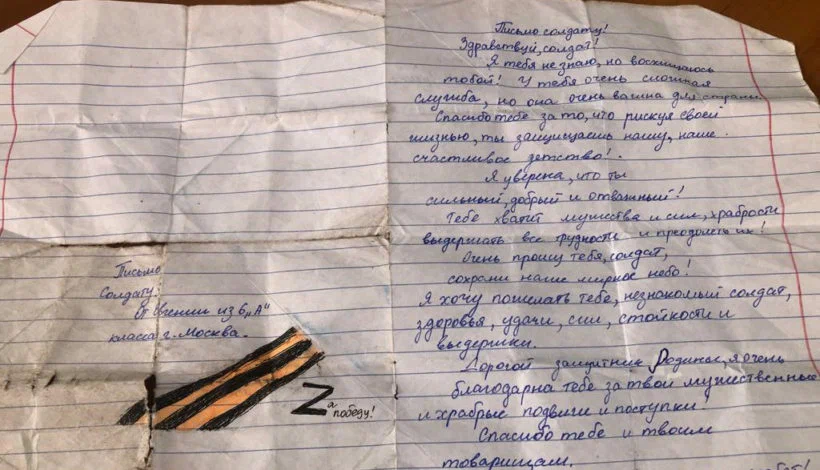 Письмо
Солдату.
От Евгении из 6 „А"
класса г. Москва.
Zа
победу!
Письмо солдату!
Здравствуй, солдат!
Я тебя не знаю, но восхищаюсь
тобой! У тебя очень сложная
служба, но она очень важна для страны.
Спасибо тебе за то, что рискуя своей
жизнью, ты защищаешь нашу, наше
счастливое детство!
Я уверена, что ты
сильный, добрый и отважный!
Тебе хватит мужества и сил, храбрости
выдержать все трудности и преодолеть их!
Очень прошу тебя, солдат,
сохрани наше мирное небо!
Я хочу пожелать тебе, незнакомый солдат,
здоровья, удачи, сил, стойкости и
выдержки.
Дорогой защитник Родины, я очень
благодарна тебе за твои мужественные
и храбрые подвиги и поступки!
Спасибо тебе и твоим
товарищам.